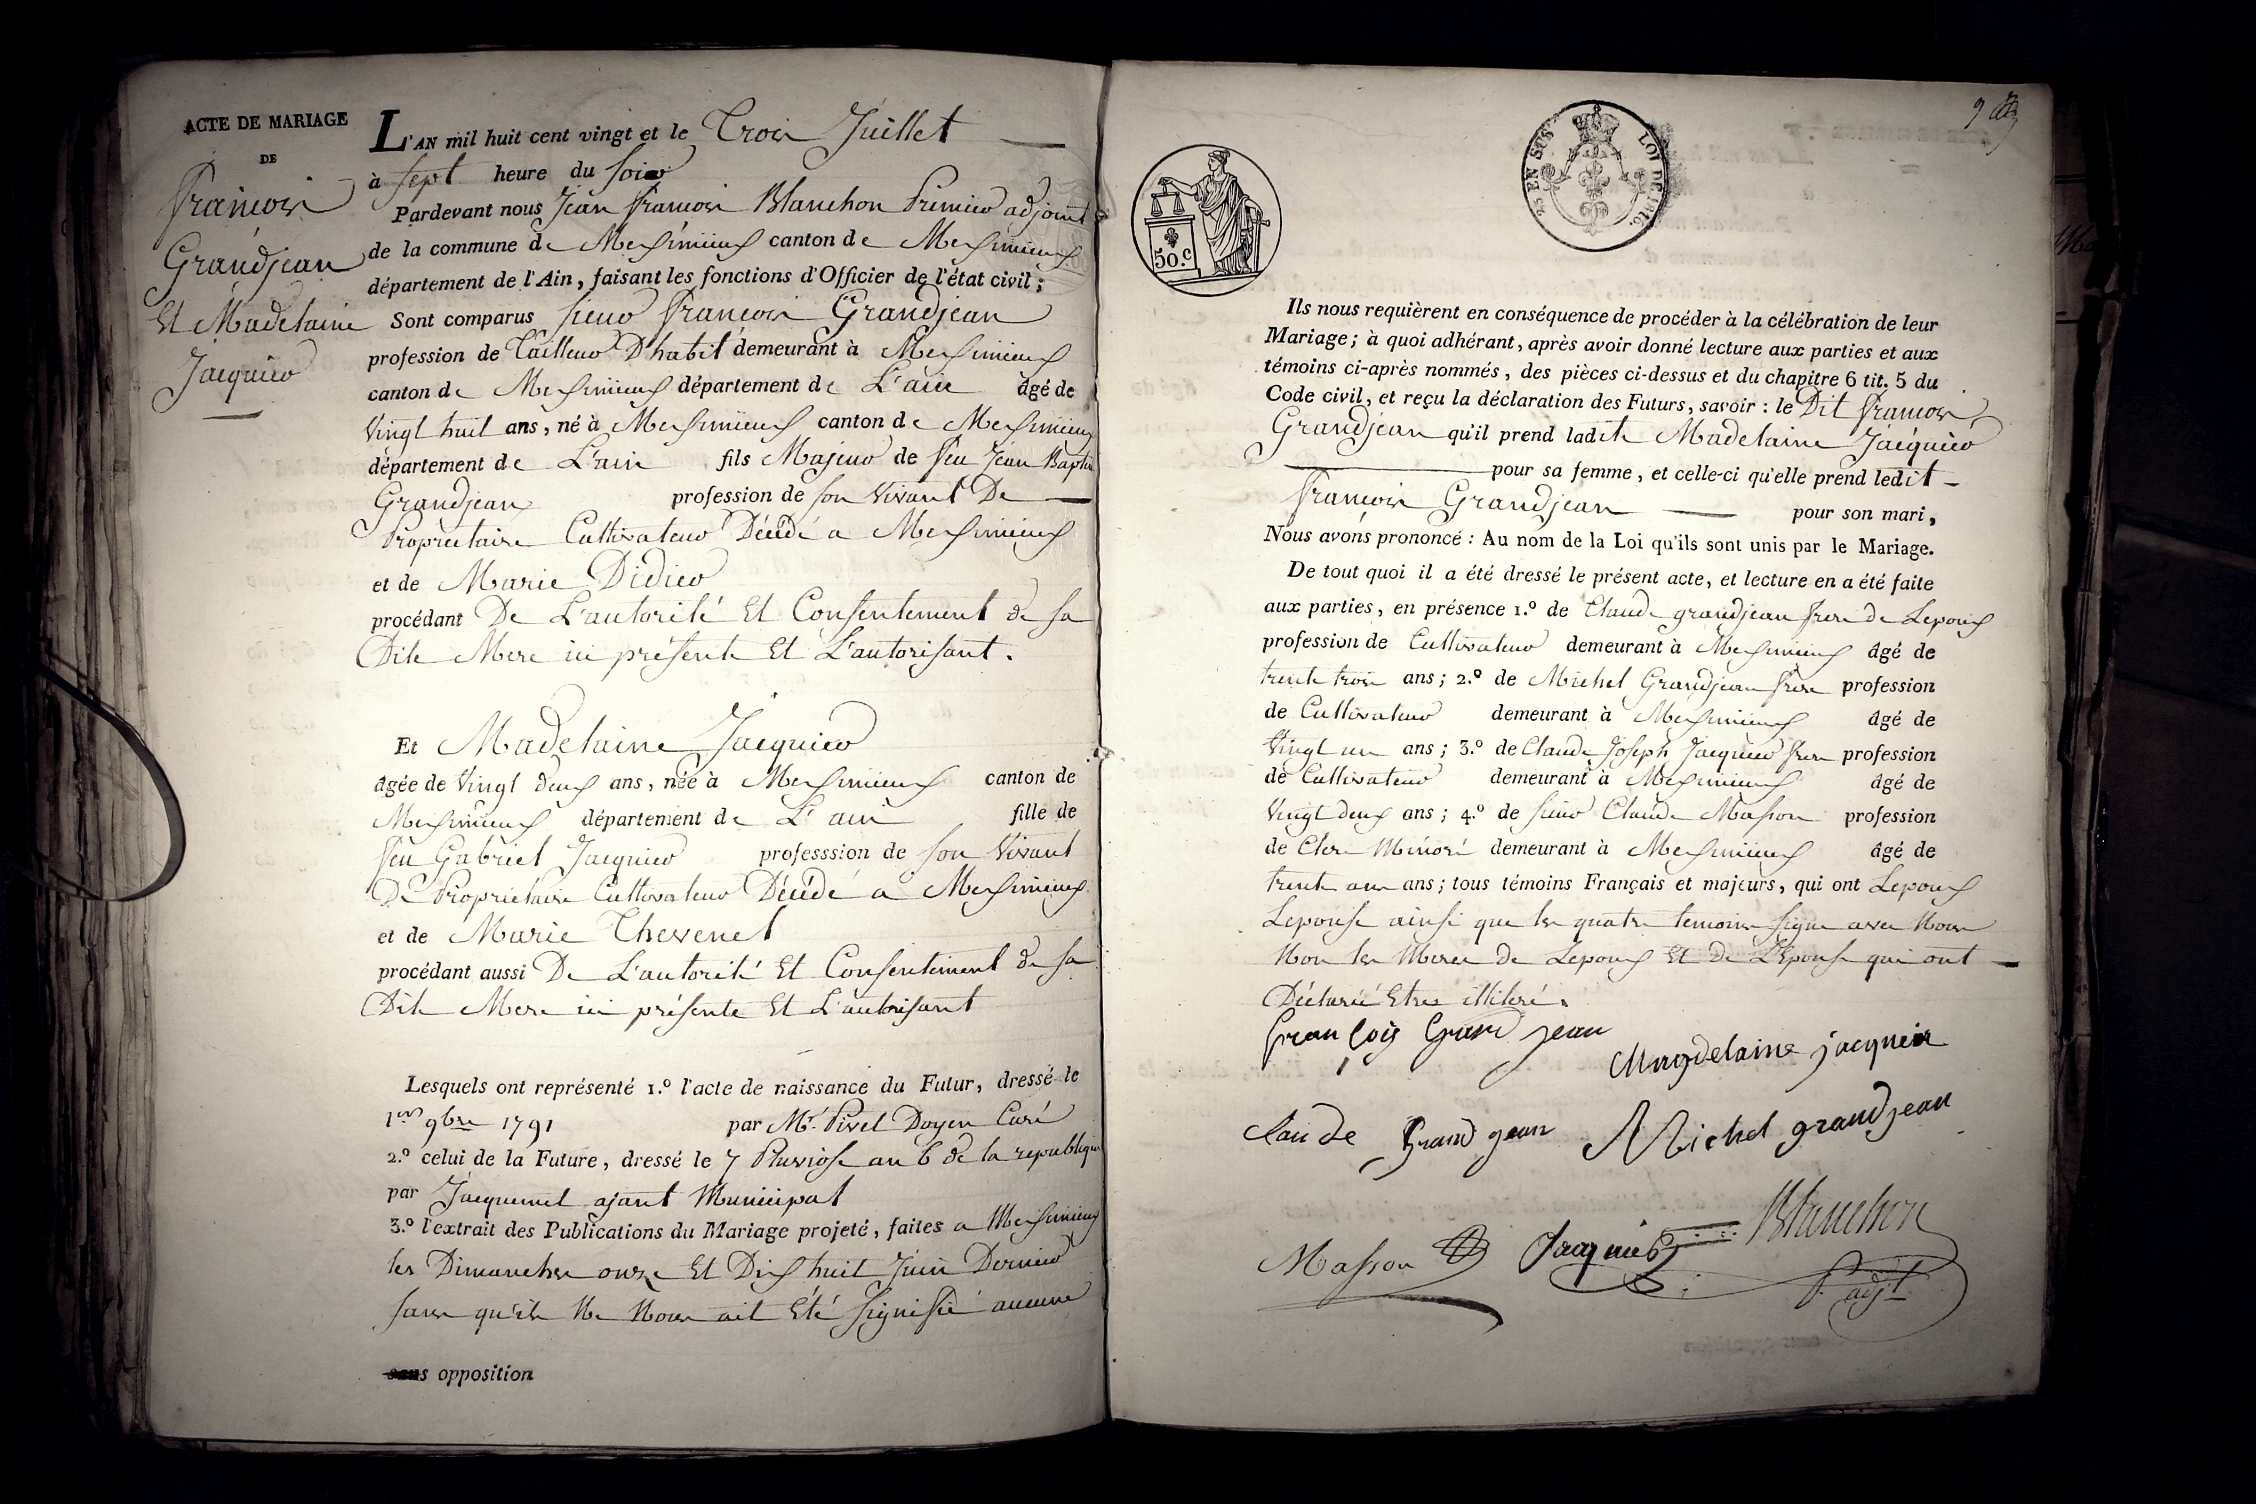 ACTE DE MARIAGE
DE
François
Grandjean
Et Madelaine
Jacquier
L'AN mil huit cent vingt et le Trois Juillet
à sept heure du soir
Pardevant nous Jean François Blanchon Premier adjoint
de la commune de Meximieux canton de Meximieux
département de l'Ain, faisant les fonctions d'Officier de l'état civil;
Sont comparus sieur François Grandjean
profession de Tailleur D'habit demeurant à Meximieux
canton de Meximieux département de L'ain âgé de
Vingt huit ans, né à Meximieux canton de Meximieux
département de L'ain fils Majeur de feu Jean Baptiste
Grandjean profession de son Vivant De
Propriétaire Cultivateur Décédé a Meximieux
et de Marie Didier
procédant De L'autorité Et Consentement de sa
Dite Mere ici présente Et L'autorisant.
Et Madelaine Jacquier
âgée de Vingt deux ans, née à Meximieux canton de
Meximieux département de L'ain fille de
feu Gabriel Jacquier professsion de son Vivant
De Propriétaire Cultivateur Décédé a Meximieux
et de Marie Thevenet
procédant aussi De L'autorité Et Consentement de sa
Dite Mere ici présente Et L'autorisant
Lesquels ont représenté 1.º l'acte de naissance du Futur, dressé le
1er 9bre 1791 par Mr. Pivet Doyen Curé
2.º celui de la Future, dressé le 7 Pluviose an 6 de la republique
par Jacquemet ajant Municipal
3.º l'extrait des Publications du Mariage projeté, faites a Meximieux
les Dimanches onze Et Dix huit Juin Dernier
sans qu'il Ne Nous ait Eté signifié aucune
sans opposition
50.c
25 EN SUS
LOI DE 1816
9
Ils nous requièrent en conséquence de procéder à la célébration de leur
Mariage; à quoi adhérant, après avoir donné lecture aux parties et aux
témoins ci-après nommés, des pièces ci-dessus et du chapitre 6 tit. 5 du
Code civil, et reçu la déclaration des Futurs, savoir: le Dit François
Grandjean qu'il prend ladite Madelaine Jacquier
pour sa femme, et celle-ci qu'elle prend ledit
François Grandjean pour son mari,
Nous avons prononcé: Au nom de la Loi qu'ils sont unis par le Mariage.
De tout quoi il a été dressé le présent acte, et lecture en a été faite
aux parties, en présence 1.º de Claude grandjean frere de Lepoux
profession de Cultivateur demeurant à Meximieux âgé de
trente trois ans; 2.º de Michel Grandjean frere profession
de Cultivateur demeurant à Meximieux âgé de
Vingt un ans; 3.º de Claude Joseph Jacquier frere profession
de Cultivateur demeurant à Meximieux âgé de
Vingt deux ans; 4.º de sieur Claude Masson profession
de Clerc Minoré demeurant à Meximieux âgé de
trente ans; tous témoins Français et majeurs, qui ont Lepoux
Lepouse ainsi que les quatre temoins signé avec Nous
Non les Meres de Lepoux Et de L'Epouse qui ont
Déclaré Etres illiteré.
françois Grand jean
Magdelaine jacquier
Claude Grand jean
Michel grandjean
Masson
Jacquier
Blanchon
P. adjt